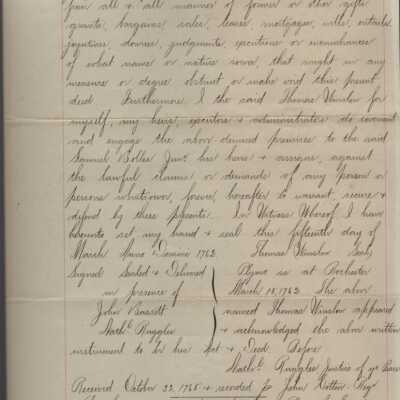 from all & all manner of former or other gifts
grants, bargains sales, leases, mortgages, wills, entails
joyntures dowries, judgments, executions or incumbrances
of what name or nature soever, that might in any
measure or degree obstruct or make void this present
deed Furthermore I the said Thomas Winslow for
myself, my heirs, executors & administrators do covenant
and engage the above demised premises to the said
Samuel Junr his heirs & assigns, against
the lawful claims or demands of any person or
persons whatsoever, forever hereafter to warrant, secure &
defend by these presents. In Witness Whereof I have
hereunto set my hand & seal this fifteenth day of
March Anno Domini 1762. Thomas Winslow Seal
Signed Sealed & Delivered
in presence of
John
Nathl Ruggles
Plymo ss at Rochester
March 15, 1762 The above
named Thomas Winslow appeared
& acknowledged the above written
instrument to be his Act & Deed. Before
Nathl. Ruggles Justice of ye Peace
Received October 22, 1765 & recorded pr John Cotton Regr